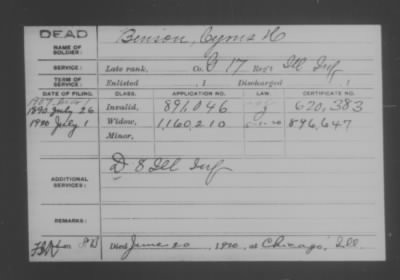 DEAD
NAME OF SOLDIER: Benson, Cyrus H
SERVICE: Late rank, Co. G 17 Reg't Ill Inf
TERM OF SERVICE: Enlisted , 1 Discharged , 1
DATE OF FILING. CLASS. APPLICATION NO. LAW. CERTIFICATE NO.
1890 July 26 Invalid, 896,046 620,383
1920 July 1 Widow, 1,160,210 896,647
Minor,
ADDITIONAL SERVICES: D 8 Ill Inf
REMARKS:
Died June 20, 1920, at Chicago, Ill.